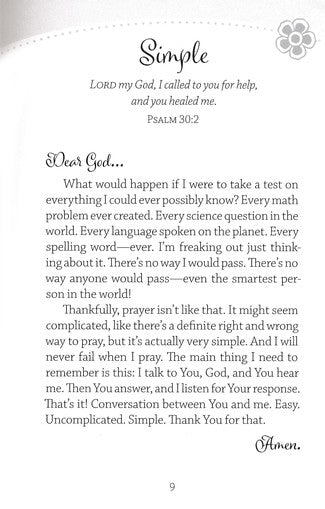 Simple
LORD my God, I called to you for help,
and you healed me.
PSALM 30:2
Dear God...
What would happen if I were to take a test on
everything I could ever possibly know? Every math
problem ever created. Every science question in the
world. Every language spoken on the planet. Every
spelling word—ever. I'm freaking out just think-
ing about it. There's no way I would pass. There's no
way anyone would pass—even the smartest per-
son in the world!
Thankfully, prayer isn't like that. It might seem
complicated, like there's a definite right and wrong
way to pray, but it's actually very simple. And I will
never fail when I pray. The main thing I need to
remember is this: I talk to You, God, and You hear
me. Then You answer, and I listen for Your response.
That's it! Conversation between You and me. Easy.
Uncomplicated. Simple. Thank You for that.
Amen.
9